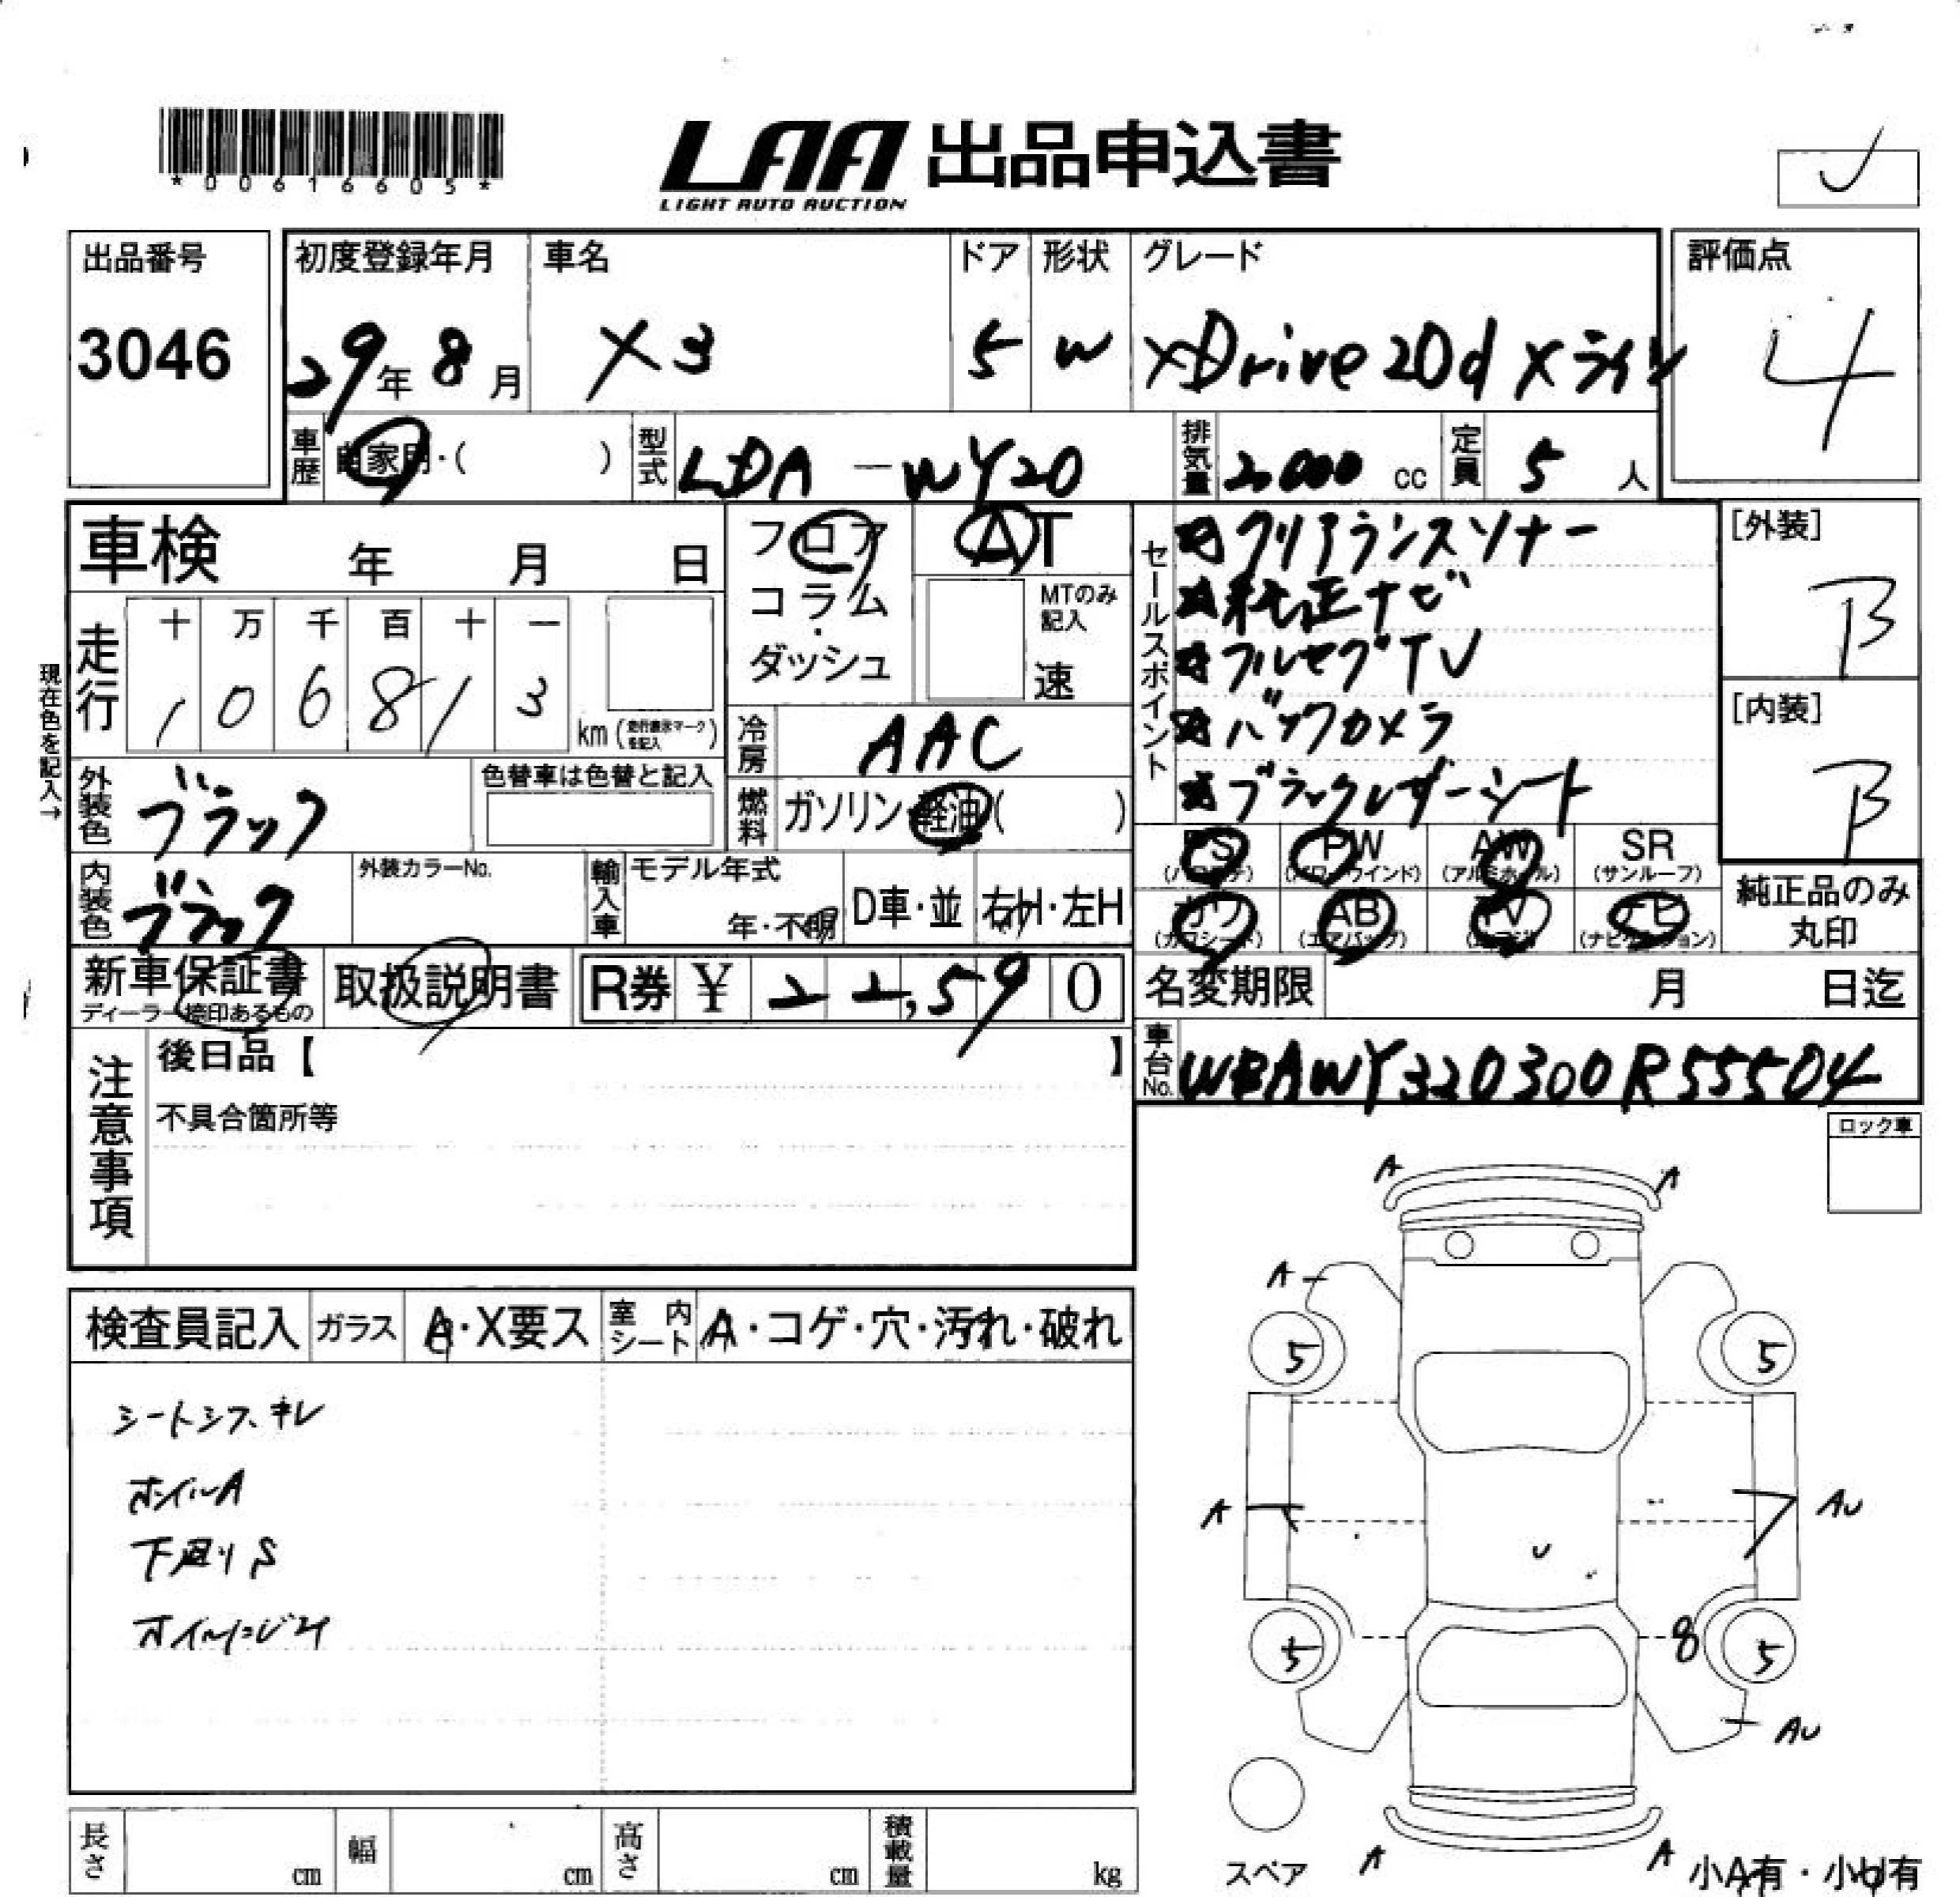 *00616605*
LAA 出品申込書
LIGHT AUTO AUCTION
出品番号
3046
初度登録年月
29年8月
車名
X3
ドア
5
形状
W
グレード
xDrive20d Xライン
評価点
4
車歴 自家用・( )
型式 LDA-WY20
排気量 2000 cc
定員 5 人
車検 年 月 日
フロア・コラム・ダッシュ
AT
MTのみ記入
速
セールスポイント
★クリアランスソナー
★純正ナビ
★フルセグTV
★バックカメラ
★ブラックレザーシート
[外装]
B
[内装]
B
現在色を記入→
走行
十 万 千 百 十 一
1 0 6 8 1 3
km(走行表示マークを記入)
冷房 AAC
外装色 ブラック
色替車は色替と記入
燃料 ガソリン・軽油( )
PS (パワステ) PW (パワーウインド) AW (アルミホイール) SR (サンルーフ)
カワ (カワシート) AB (エアバッグ) TV (テレビ) ナビ (ナビゲーション)
純正品のみ丸印
内装色 ブラック
外装カラーNo.
輸入車 モデル年式
年・不明
D車・並
右H・左H
新車保証書
ディーラー捺印あるもの
取扱説明書
R券 ¥ 22,590
名変期限 月 日迄
車台No. WBAWY320300R55504
注意事項
後日品【 】
不具合箇所等
ロック車
検査員記入
ガラス A・X要ス
室内シート A・コゲ・穴・汚れ・破れ
シートシワ、キレ
ホイルA
下廻りS
オイルにじみ
A A
A
5 5
A AU
U
5 8 5
AU
A A
スペア
小A有・小U有
長さ cm
幅 cm
高さ cm
積載量 kg